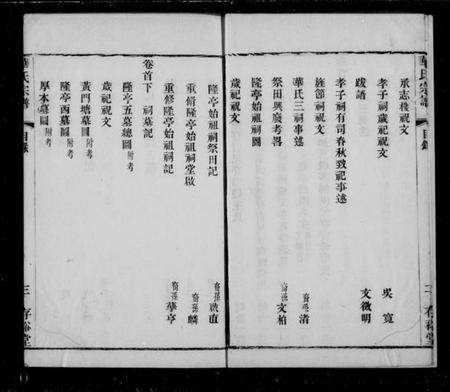 華氏宗譜 目錄 二 存裕堂
承志棧祝文
孝子祠歲祀祝文
跋譜 吳寬 文徵明
孝子祠有司春秋致祀事述
旌節祠祝文
華氏三祠事述 裔孫渚
祭田興廢考畧 裔孫文柏
隆亭始祖祠圖
歲祀祝文
隆亭始祖祠祭田記 裔孫啟直
重脩隆亭始祖祠堂啟 裔孫麟
重修隆亭始祖祠記 裔孫孳亨
卷首下 祠墓記
歲祀祝文
隆亭五墓總圖 附考
隆亭西墓圖 附考
黃門塘墓圖 附考
厚本墓圖 附考
華氏宗譜 目錄 三 存裕堂